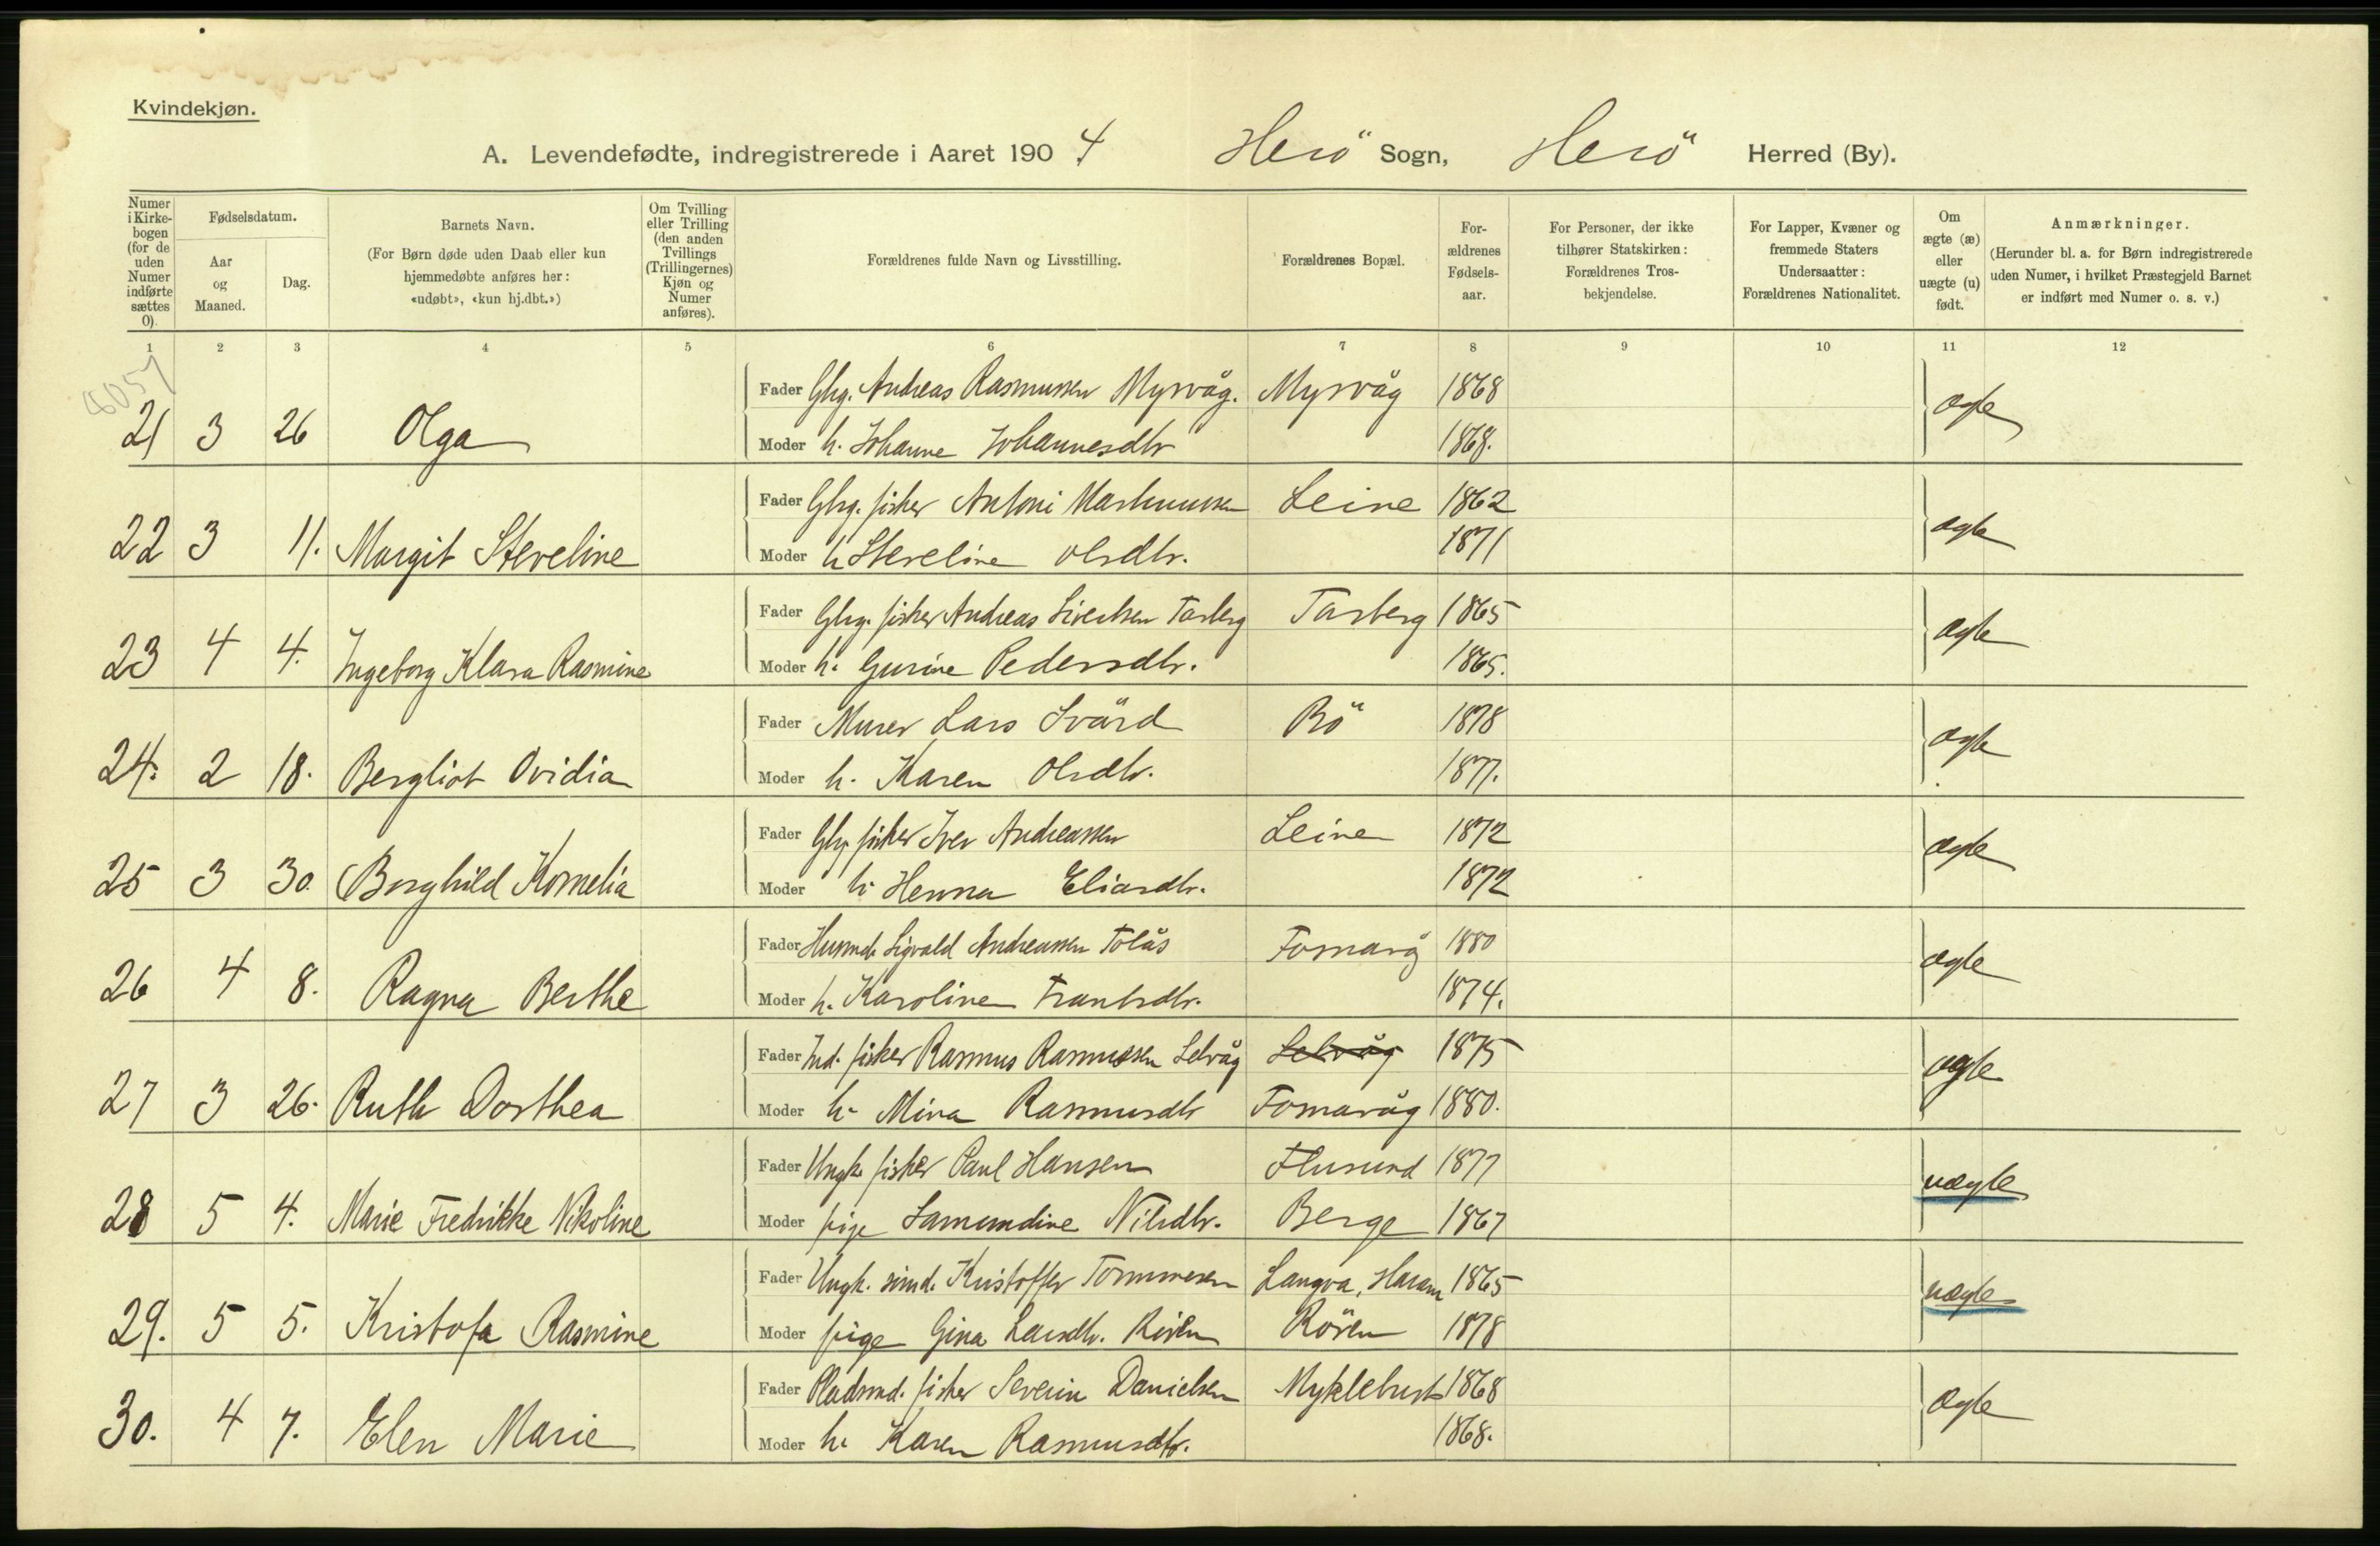 Kvindekjøn.
A. Levendefødte, indregistrerede i Aaret 1904 Herö Sogn, Herö Herred (By).
Numer i Kirkebogen (for de uden Numer indførte sættes 0).
Fødselsdatum.
Aar og Maaned.
Dag.
Barnets Navn.
(For Børn døde uden Daab eller kun hjemmedøbte anføres her: «udøbt», «kun hj.dbt.»)
Om Tvilling eller Trilling (den anden Tvillings (Trillingernes) Kjøn og Numer anføres).
Forældrenes fulde Navn og Livsstilling.
Forældrenes Bopæl.
Forældrenes Fødselsaar.
For Personer, der ikke tilhører Statskirken: Forældrenes Trosbekjendelse.
For Lapper, Kvæner og fremmede Staters Undersaatter: Forældrenes Nationalitet.
Om ægte (æ) eller uægte (u) født.
Anmærkninger.
(Herunder bl. a. for Børn indregistrerede uden Numer, i hvilket Præstegjeld Barnet er indført med Numer o. s. v.)
1 2 3 4 5 6 7 8 9 10 11 12
8057
Fader Gbg. Andreas Rasmussen Myrvåg. Myrvåg 1868
21 3 26 Olga Moder h. Johanne Johannesdtr 1868. ægte
Fader Gbrg. fisker Antoni Martinussen Leine 1862
22 3 11. Margit Steveline Moder h Steveline Olsdtr. 1871 ægte
Fader Gbrg. fisker Andreas Sivertsen Tarberg Tarberg 1865
23 4 4. Ingeborg Klara Rasmine Moder h. Gurine Pedersdtr. 1865. ægte
Fader Murer Lars Svärd Bö 1878
24. 2 18. Bergliot Ovidia Moder h. Karen Olsdtr. 1877. ægte
Fader Gbg fisker Iver Andreassen Leine 1872
25 3 30. Borghild Kornelia Moder h. Henna Eliasdtr. 1872 ægte
Fader Husmd. Sigvald Andreassen Tolås Fosnavåg 1880
26 4 8. Ragna Berthe Moder h. Karoline Frantsdtr. 1874. ægte
Fader Ind. fisker Rasmus Rasmussen Selvåg Selvåg 1875
27 3 26. Ruth Dorthea Moder h. Mina Rasmusdtr Fosnavåg 1880. ægte
Fader Ungk. fisker Paul Hansen Flusund 1877
28 5 4. Marie Fredrikke Nikoline Moder pige Samundine Nilsdtr. Berge 1867 uægte
Fader Ungk. sømd. Kristoffer Tommesen Langva, Haram 1865
29. 5 5. Kristofa Rasmine Moder pige Gina Larsdtr. Rören Rören 1878 uægte
Fader Pladsmd. fisker Severin Danielsen Myklebust 1868
30. 4 7. Elen Marie Moder h. Karen Rasmusdtr. 1868. ægte